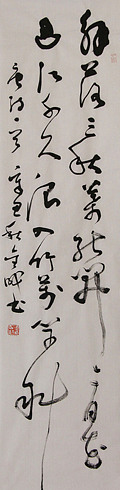 解落三秋葉能開二月花
過江千尺浪入竹萬竿斜
唐詩一首辛丑秋金峰書